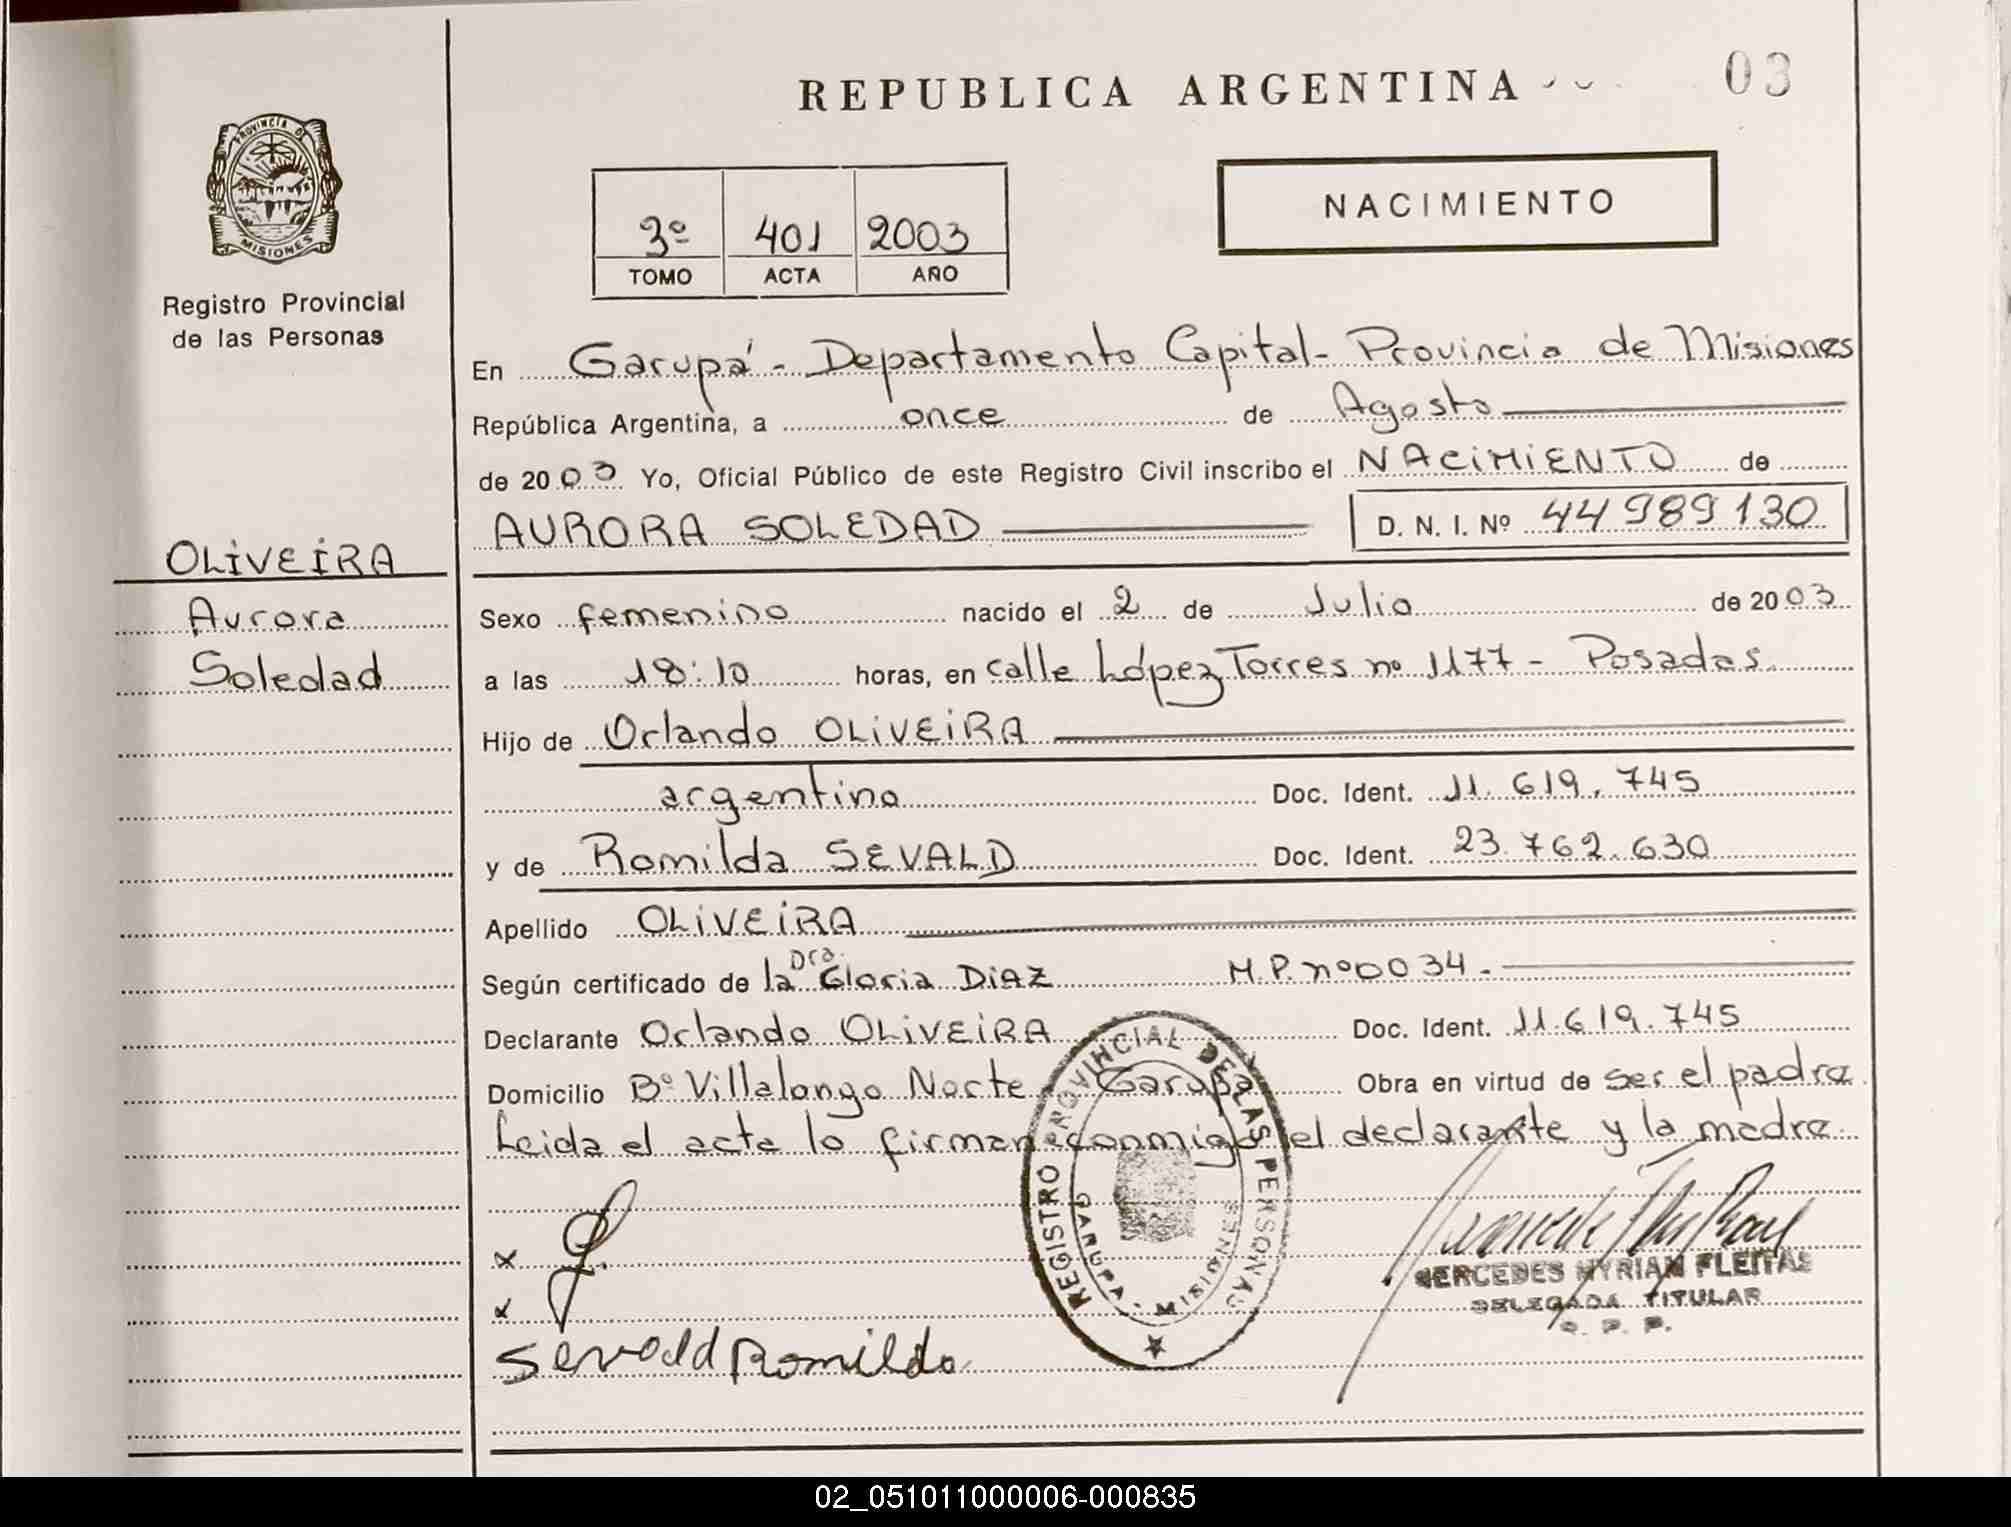 REPUBLICA ARGENTINA
03
PROVINCIA DE
MISIONES
Registro Provincial
de las Personas
3º 401 2003
TOMO ACTA AÑO
NACIMIENTO
En Garupá - Departamento Capital - Provincia de Misiones
República Argentina, a once de Agosto
de 2003 Yo, Oficial Público de este Registro Civil inscribo el NACIMIENTO de
AURORA SOLEDAD D. N. I. Nº 44989130
OLIVEIRA
Aurora
Soledad
Sexo femenino nacido el 2 de Julio de 2003
a las 18:10 horas, en calle López Torres nº 1177 - Posadas
Hijo de Orlando OLIVEIRA
argentino Doc. Ident. 11.619.745
y de Romilda SEVALD Doc. Ident. 23.762.630
Apellido OLIVEIRA
Según certificado de la Dra. Gloria DIAZ M.P. nº 0034.-
Declarante Orlando OLIVEIRA Doc. Ident. 11.619.745
Domicilio Bº Villalonga Norte Garupá Obra en virtud de ser el padre
Leida el acta lo firman conmigo el declarante y la madre
REGISTRO PROVINCIAL DE LAS PERSONAS
GARUPA - MISIONES
x
x
Sevald Romilda
MERCEDES MYRIAN FLEITAS
DELEGADA TITULAR
R. P. P.
02_051011000006-000835